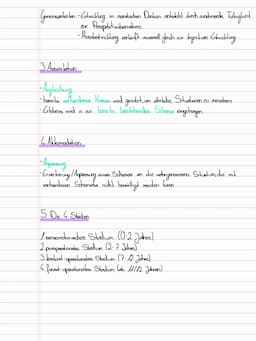 Gemeinsamkeiten: - Entwicklung im moralischen Denken entsteht durch zunehmende Fähigkeit
zur Perspektivübernahme
- Moralentwicklung verläuft universell gleich zur kognitiven Entwicklung
3. Assimilation
- Angleichung
- bereits vorhandenes Wissen wird genutzt, um ähnliche Situationen zu meistern
- Erlebnis wird in ein bereits bestehendes Schema eingetragen
4. Akkomodation
- Anpassung
- Erweiterung/Anpassung eines Schemas an die wahrgenommene Situation, die mit
vorhandenen Schemata nicht bewältigt werden kann
5. Die 4 Stadien
1. sensomotorisches Stadium (0-2 Jahre)
2. präoperationales Stadium (2-7 Jahre)
3. konkret-operationales Stadium (7-12 Jahre)
4. formal-operationales Stadium (ab 11/12 Jahren)